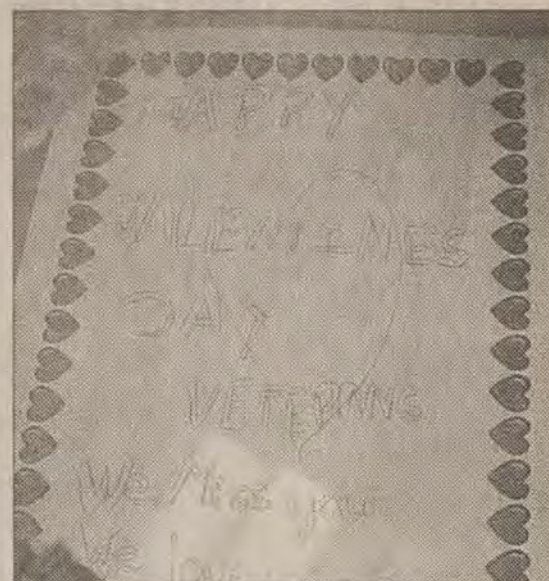 HAPPY
VALENTINES
DAY
VETERANS
We Miss you
We love